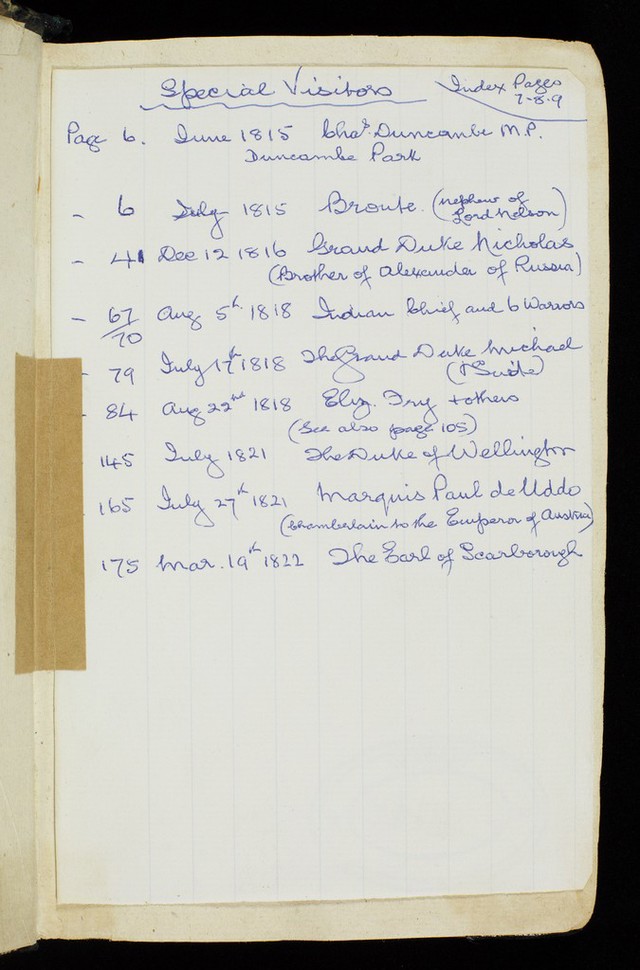 Special Visitors
Index Pages
7-8-9
Page 6. June 1815 Chas. Duncombe M.P.
Duncombe Park
- 6 July 1815 Bronte. (nephew of
Lord Nelson)
- 41 Dec 12 1816 Grand Duke Nicholas
(Brother of Alexander of Russia)
- 67/70 Aug 5th 1818 Indian Chief and 6 Warriors
- 79 July 17th 1818 The Grand Duke Michael
(+ Suite)
- 84 Aug 22nd 1818 Eliz. Fry + others
(See also page 105)
145 July 1821 The Duke of Wellington
165 July 27th 1821 Marquis Paul de Uddo
(Chamberlain to the Emperor of Austria)
175 Mar. 19th 1822 The Earl of Scarborough